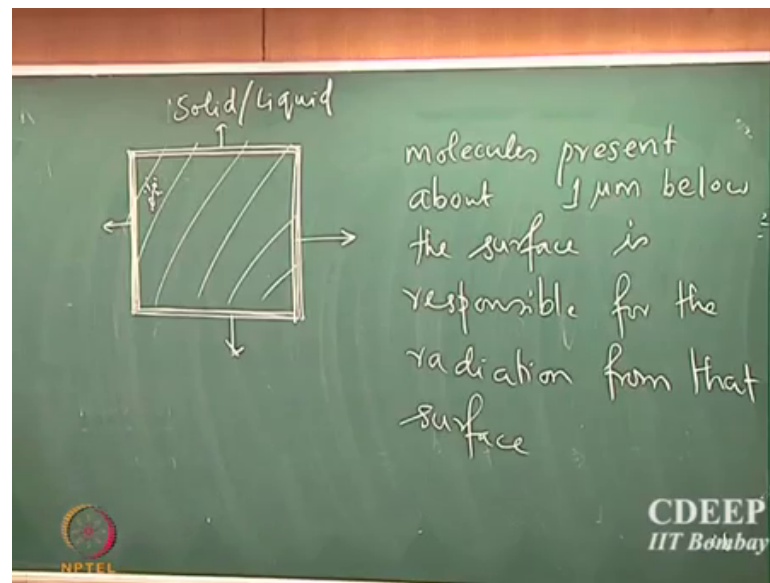 Solid/Liquid
molecules present
about 1 μm below
the surface is
responsible for the
radiation from that
surface
CDEEP
IIT Bombay
NPTEL